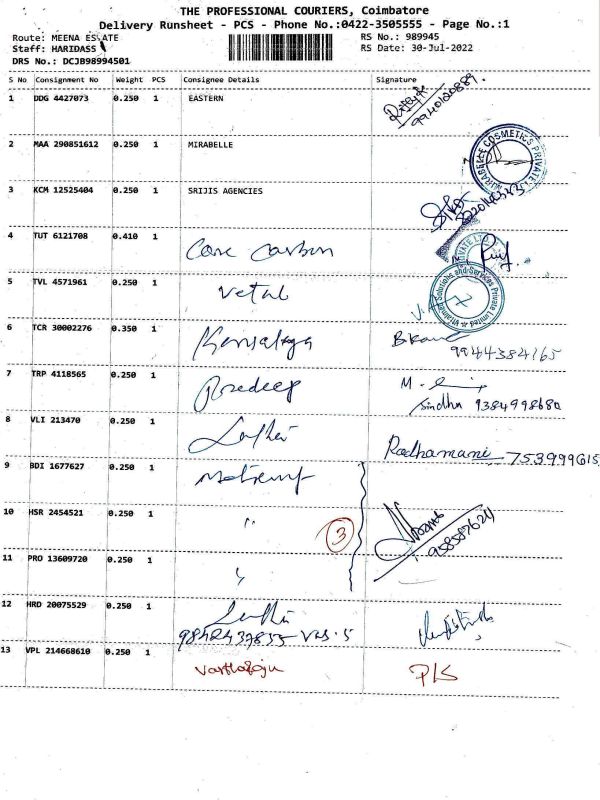 THE PROFESSIONAL COURIERS, Coimbatore
Delivery Runsheet - PCS - Phone No.:0422-3505555 - Page No.:1
Route: MEENA ESTATE RS No.: 989945
Staff: HARIDASS RS Date: 30-Jul-2022
DRS No.: DCJB98994501
S No Consignment No Weight PCS Consignee Details Signature
1 DDG 4427073 0.250 1 EASTERN
9940120889
2 MAA 290851612 0.250 1 MIRABELLE
MIRABELLE COSMETICS PRIVATE
3 KCM 12525404 0.250 1 SRIJIS AGENCIES
4 TUT 6121708 0.410 1 Care Carbon
5 TVL 4571961 0.250 1 Vetal
Solutions and Services Private Limited
6 TCR 30002276 0.350 1 Kansalga
9944384165
7 TRP 4118565 0.250 1 Pradeep M.
Sindhu 9384998680
8 VLI 213470 0.250 1 Radhamani 753999615
9 BDI 1677627 0.250 1
10 HSR 2454521 0.250 1 " 3
958587624
11 PRO 13609720 0.250 1 "
12 HRD 20075529 0.250 1
9842437855
13 VPL 214668610 0.250 1 Vartharaju P/S